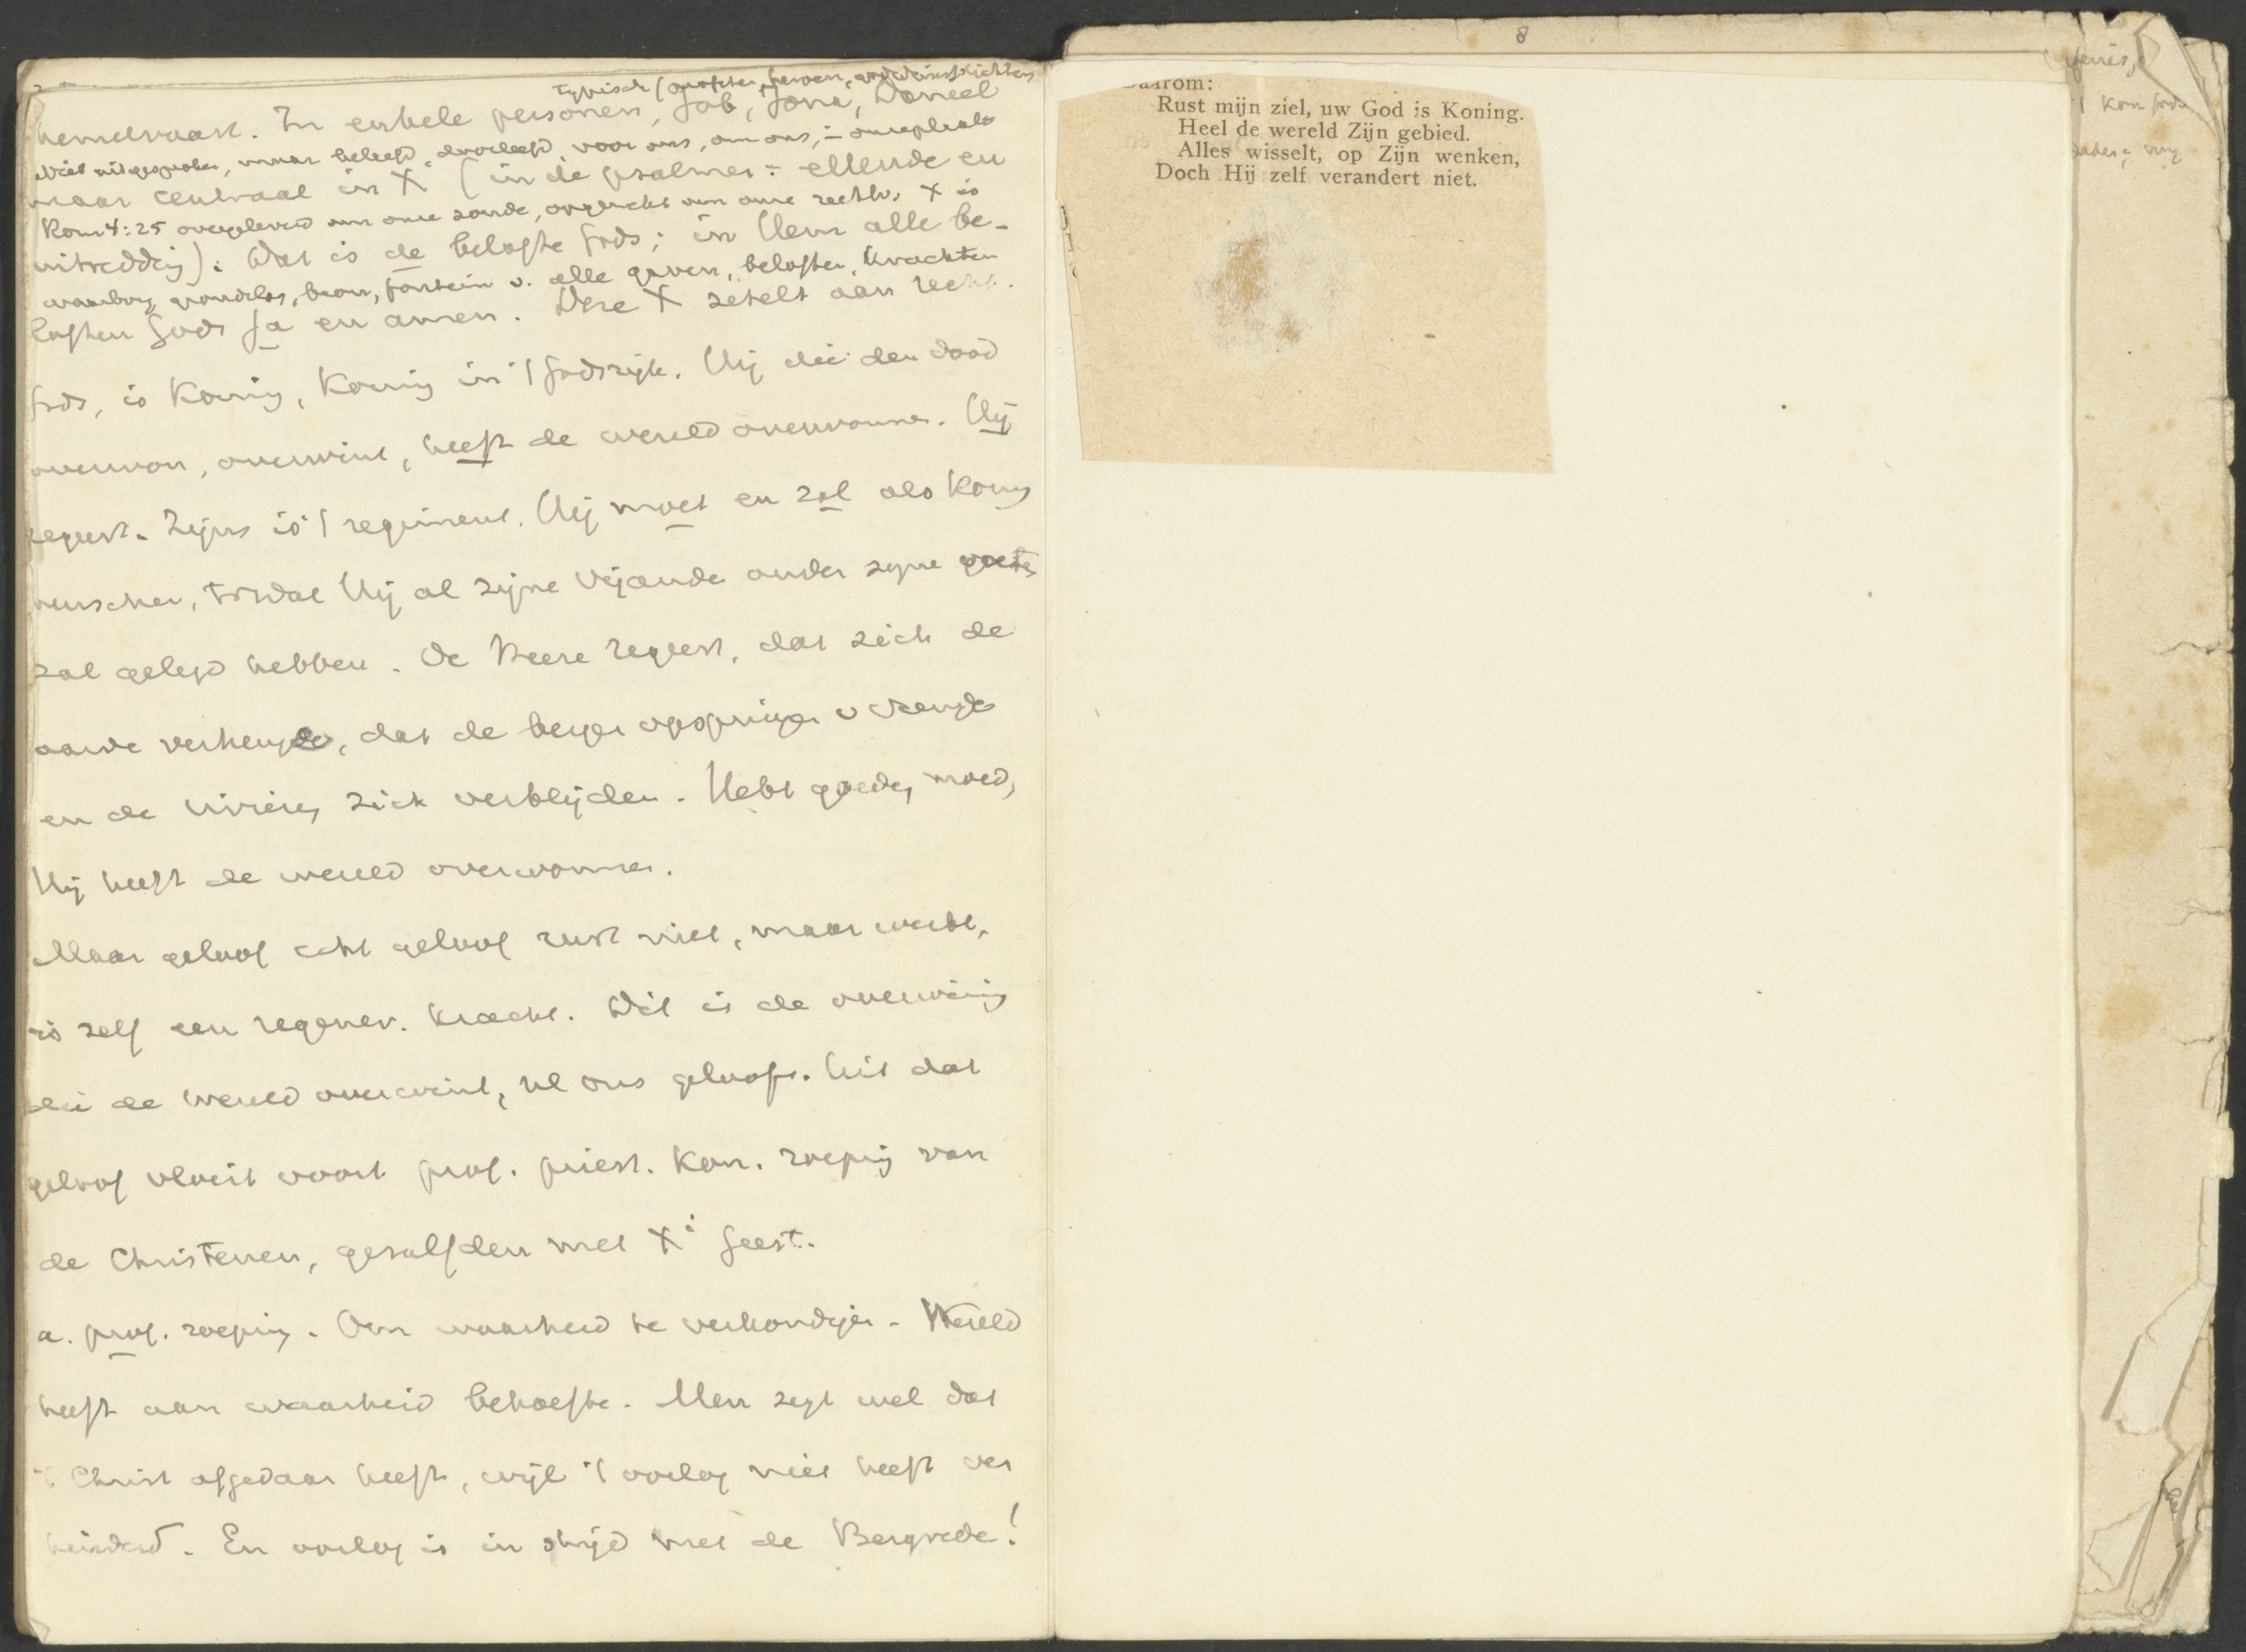 typisch (profeten,
hemelvaart. In enkele personen, Job, Jona, Daniel
Niet uitgesproken, maar beleefd, doorleefd, voor ons, om ons,
maar centraal in X (in de psalmen: ellende en
Rom 4:25 overgeleverd om onze zonde, opgewekt om onze rechtv. X is
uitredding). Dat is de belofte Gods; in Hem alle be-
waarborg, grondslag, bron, fontein v. alle gaven, beloften, krachten
loften Gods Ja en amen. Deze X zetelt aan recht.
Gods, is Koning, Koning in 't Godsrijk. Hij die den dood
overwon, overwint, heeft de wereld overwonnen. Hij
regeert. Zijns is 't regiment. Hij moet en zal als Koning
heerschen, totdat Hij al zijne vijanden onder zijne voeten
zal gelegd hebben. De Heere regeert, dat zich de
aarde verheuge, dat de bergen opspringen v vreugde
en de rivieren zich verblijden. Hebt goeden moed,
Hij heeft de wereld overwonnen.
Maar geloof echt geloof rust niet, maar werkt,
is zelf een regener. kracht. Dit is de overwinning
die de wereld overwint, nl ons geloof. Uit dat
geloof vloeit voort prof. priest. kon. roeping van
de Christenen, gezalfden met Xi Geest.
a. prof. roeping. Om waarheid te verkondigen. Wereld
heeft aan waarheid behoefte. Men zegt wel dat
't Christ afgedaan heeft, wijl 't oorlog niet heeft ver
hinderd. En oorlog is in strijd met de Bergrede!
8
Daarom:
Rust mijn ziel, uw God is Koning.
Heel de wereld Zijn gebied.
Alles wisselt, op Zijn wenken,
Doch Hij zelf verandert niet.